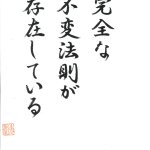 完全な
不変法則が
存在している